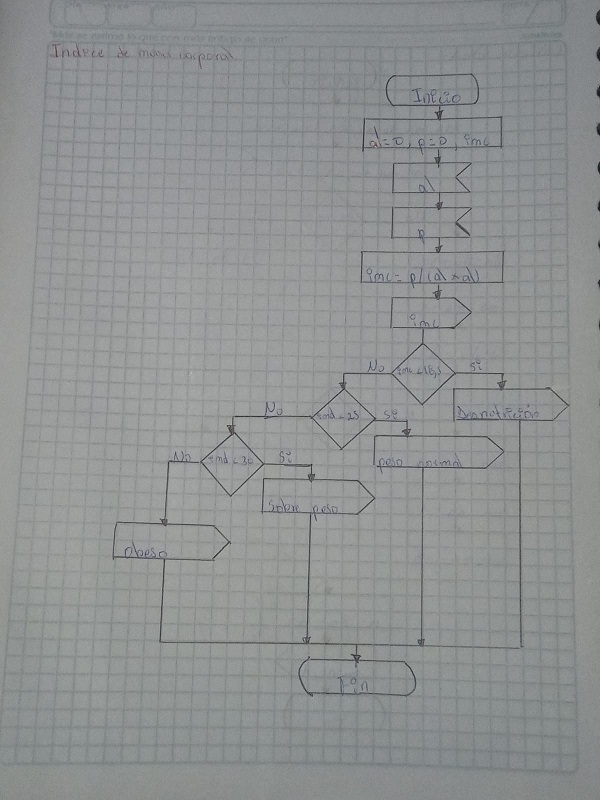 Indice de masa corporal
Inicio
al=0, p=0, imc
al
p
imc= p/(al*al)
imc
No
imc <18,5
Si
Desnutrición
No
imd <25
Si
peso normal
No
imd <30
Si
Sobre peso
obeso
Fin